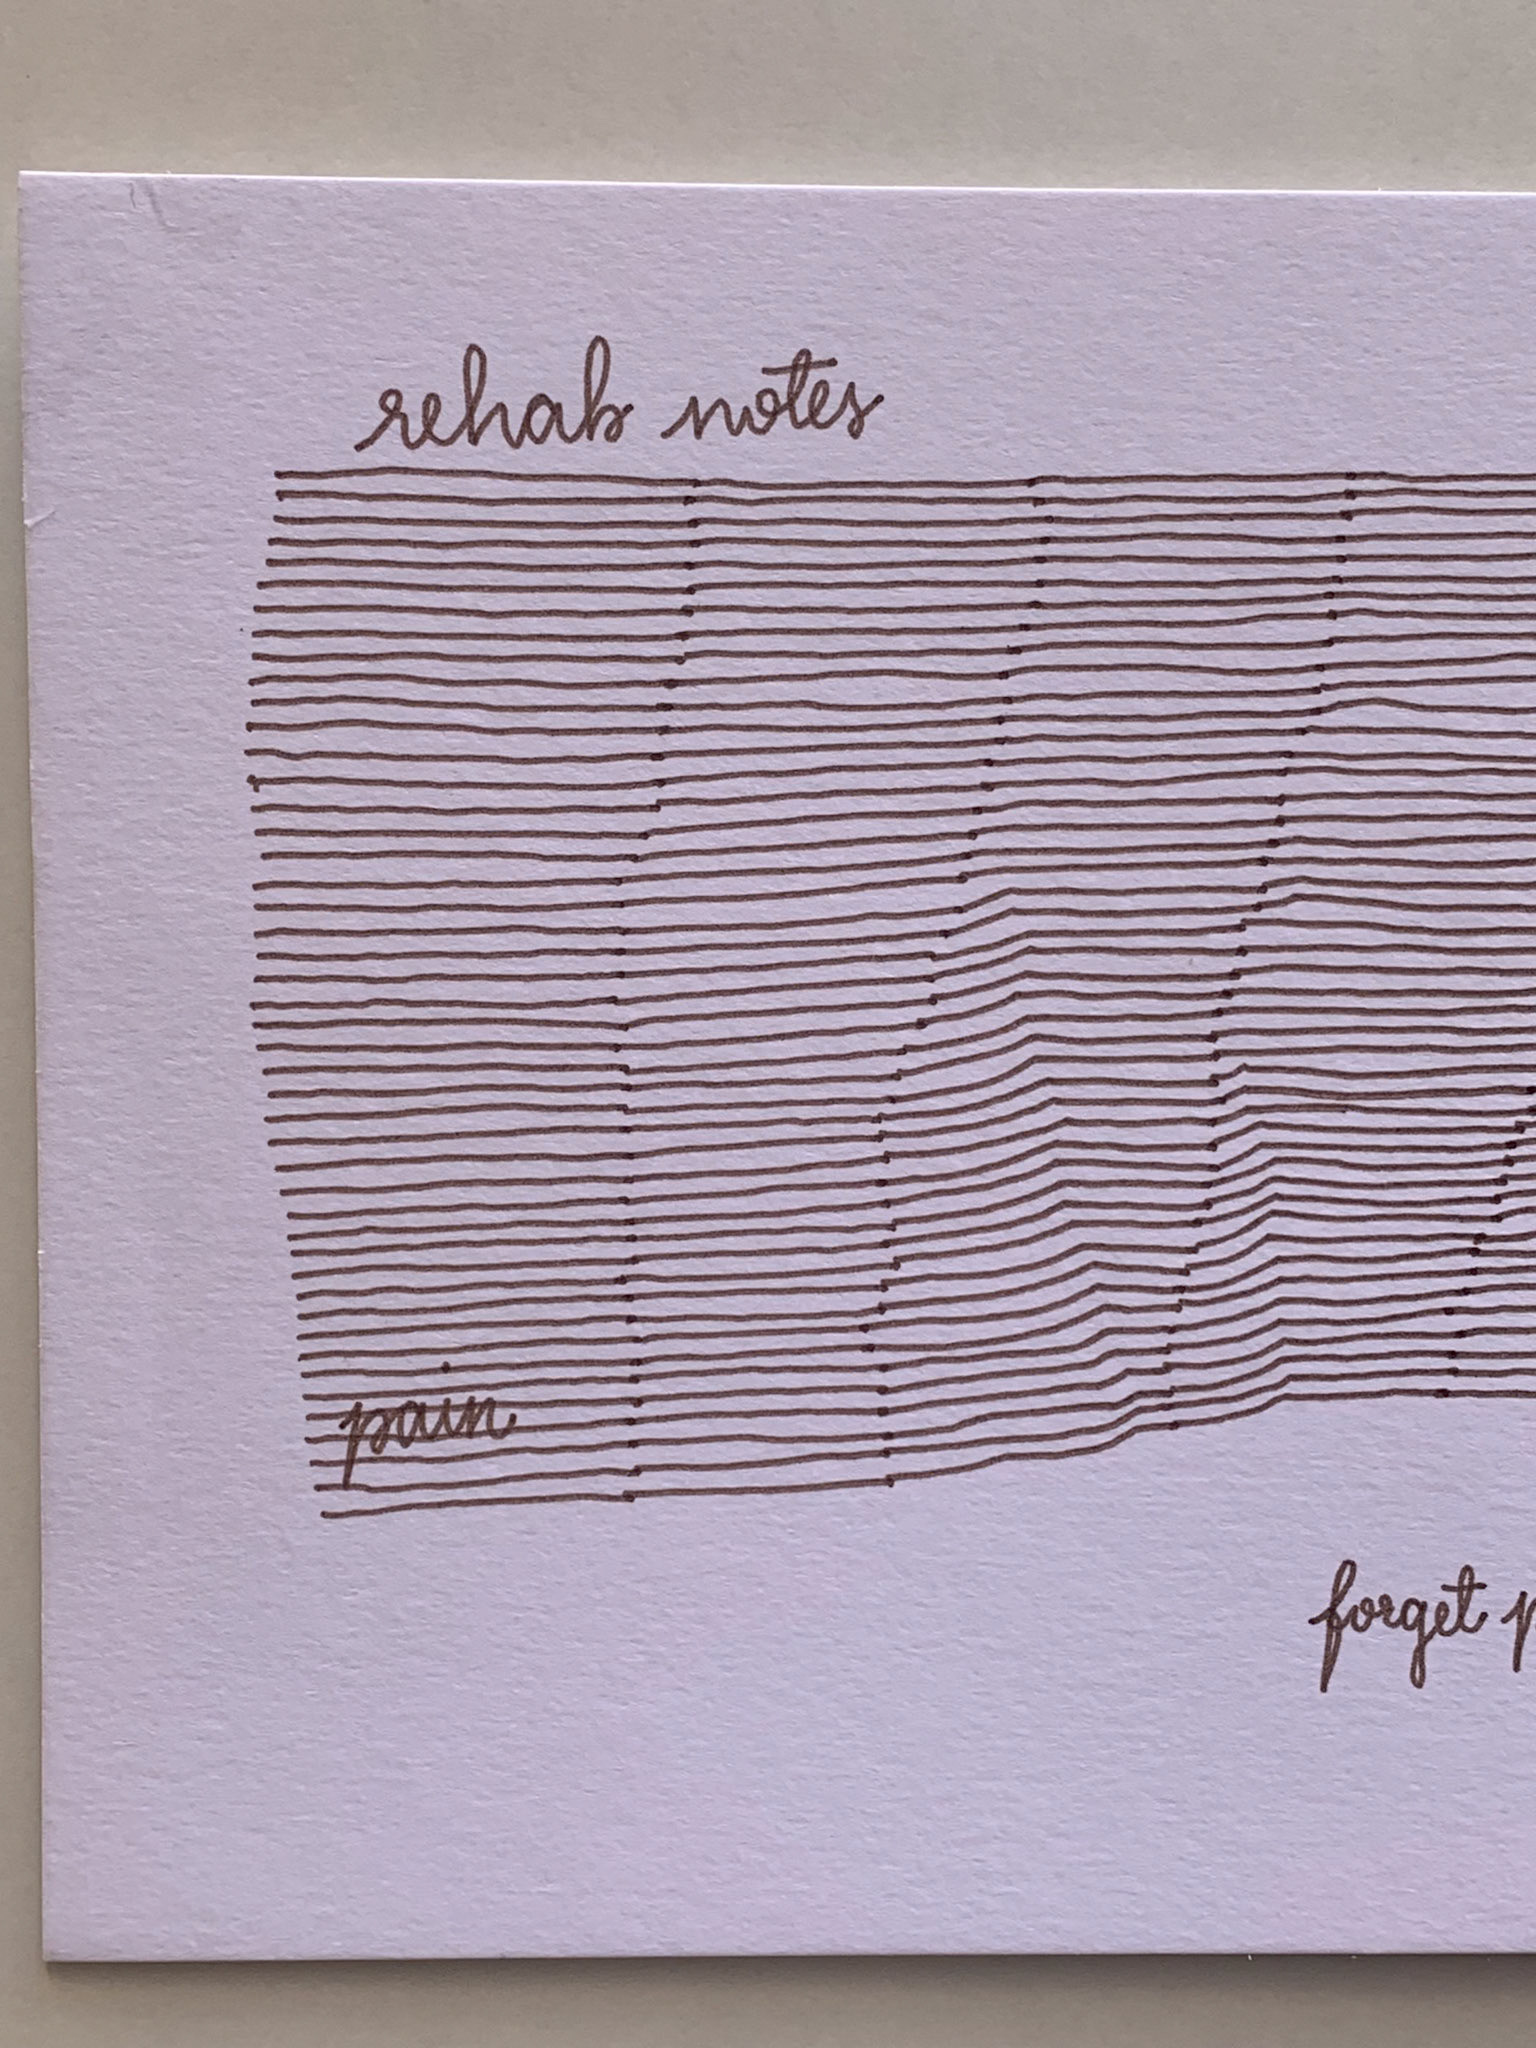 rehab notes
pain
forget